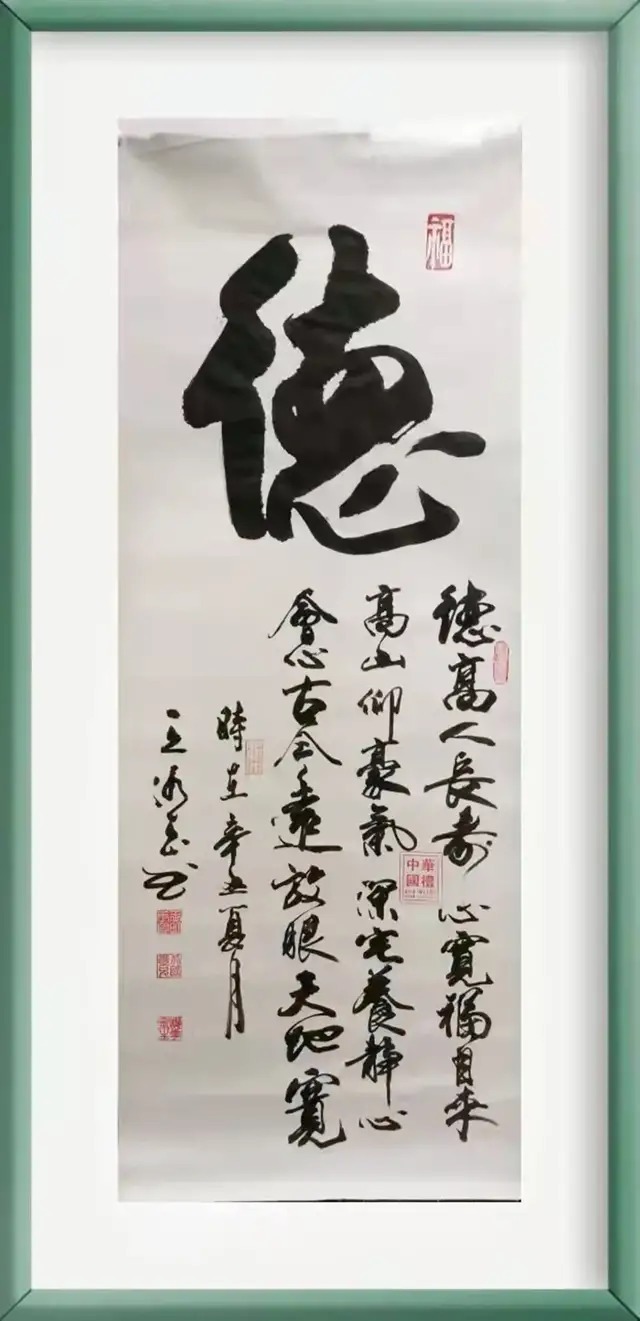 德
福
德高人長壽 心寬福自來
高山仰豪氣 深宅養静心
會心古今遠 放眼天地寬
時在辛丑夏月
書
中華
國禮